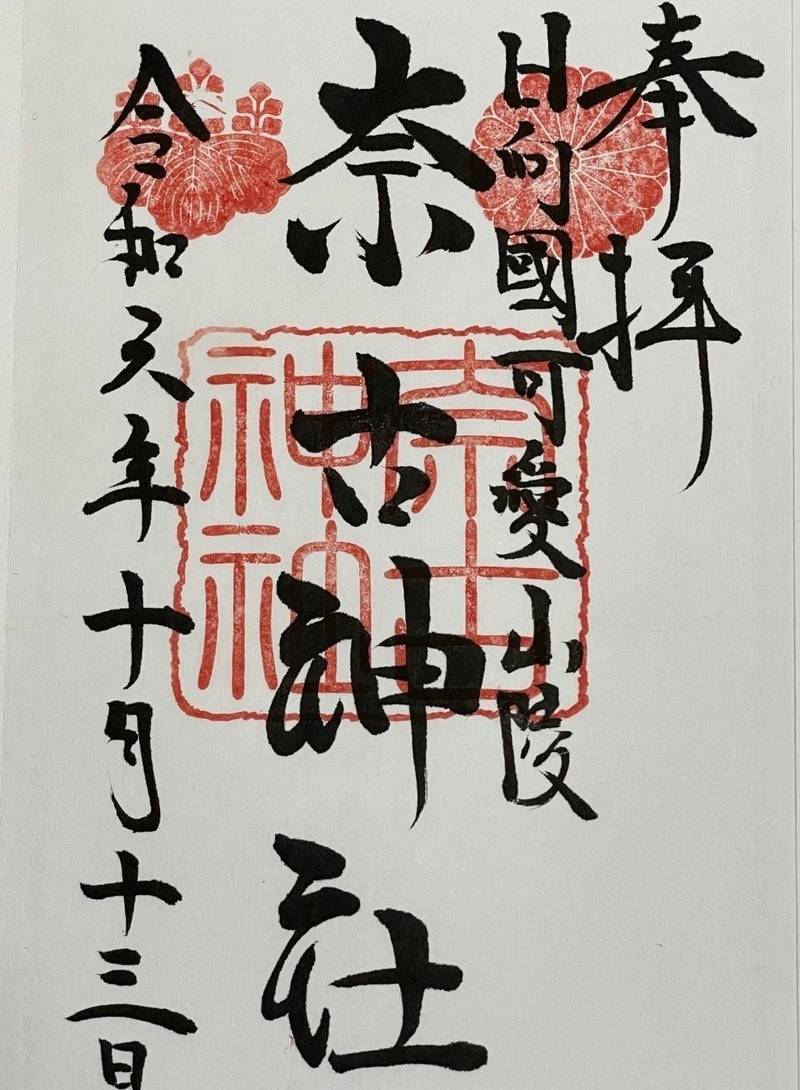 奉拝
日向國可愛山陵
奈古神社
令和元年十月十三日
奈古
神社